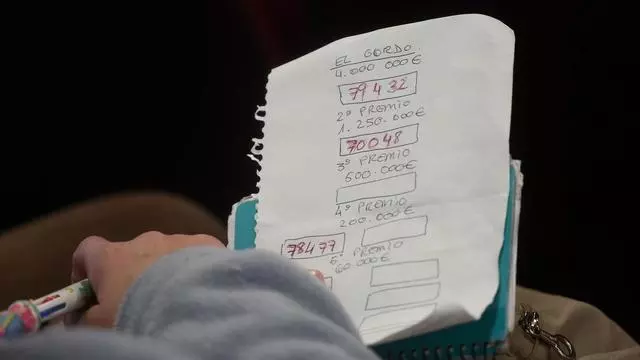 EL GORDO
4.000 000€
79432
2º PREMIO
1.250.000€
70048
3º PREMIO
500.000€
4º PREMIO
200.000€
78477
5º PREMIO
60.000€